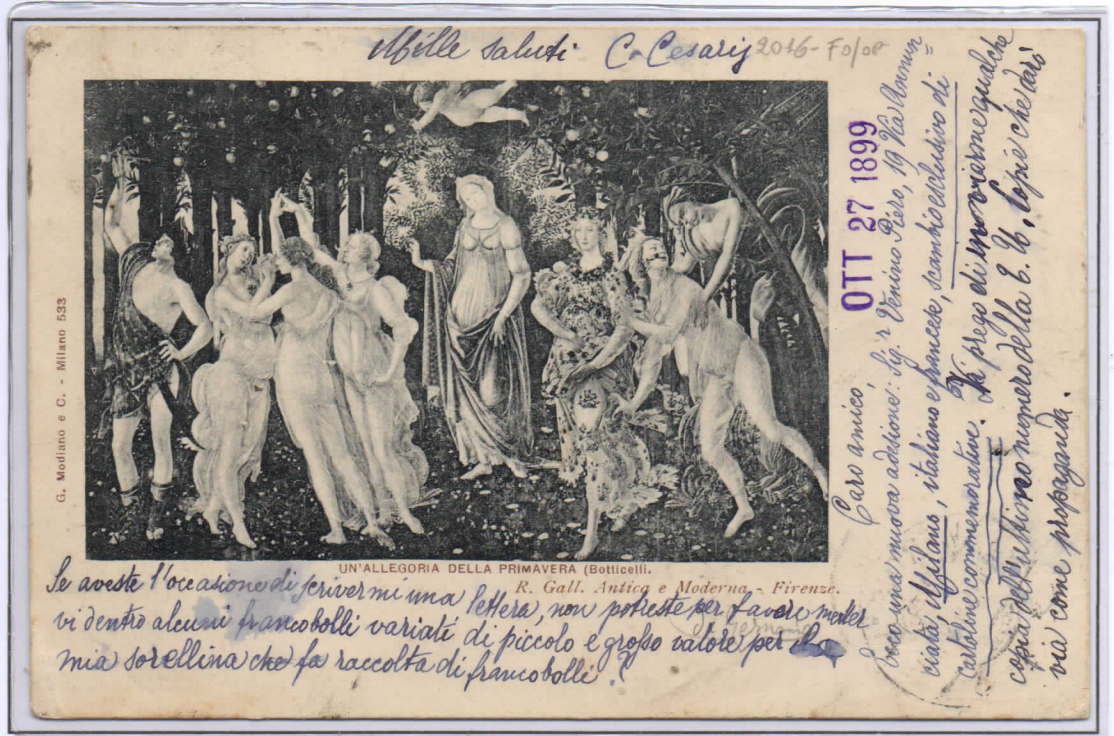 Mille saluti C. Cesarij
2016-F0/08
OTT 27 1899
G. Modiano e C. - Milano 533
UN'ALLEGORIA DELLA PRIMAVERA (Botticelli.
R. Gall. Antica e Moderna - Firenze.
Caro amico,
Ecco una nuova adesione: Sig.r Venino Piero, 19 Via Annun=
ciata, Milano, italiano e francese, scambio esclusivo di
cartoline commemorative. Vi prego di inviarme qualche
copia dell'ultimo numero della R. U., copie che darò
via come propaganda.
Se aveste l'occasione di scrivermi una lettera, non potreste per favore metter
vi dentro alcuni francobolli variati di piccolo e grosso valore per la
mia sorellina che fa raccolta di francobolli?